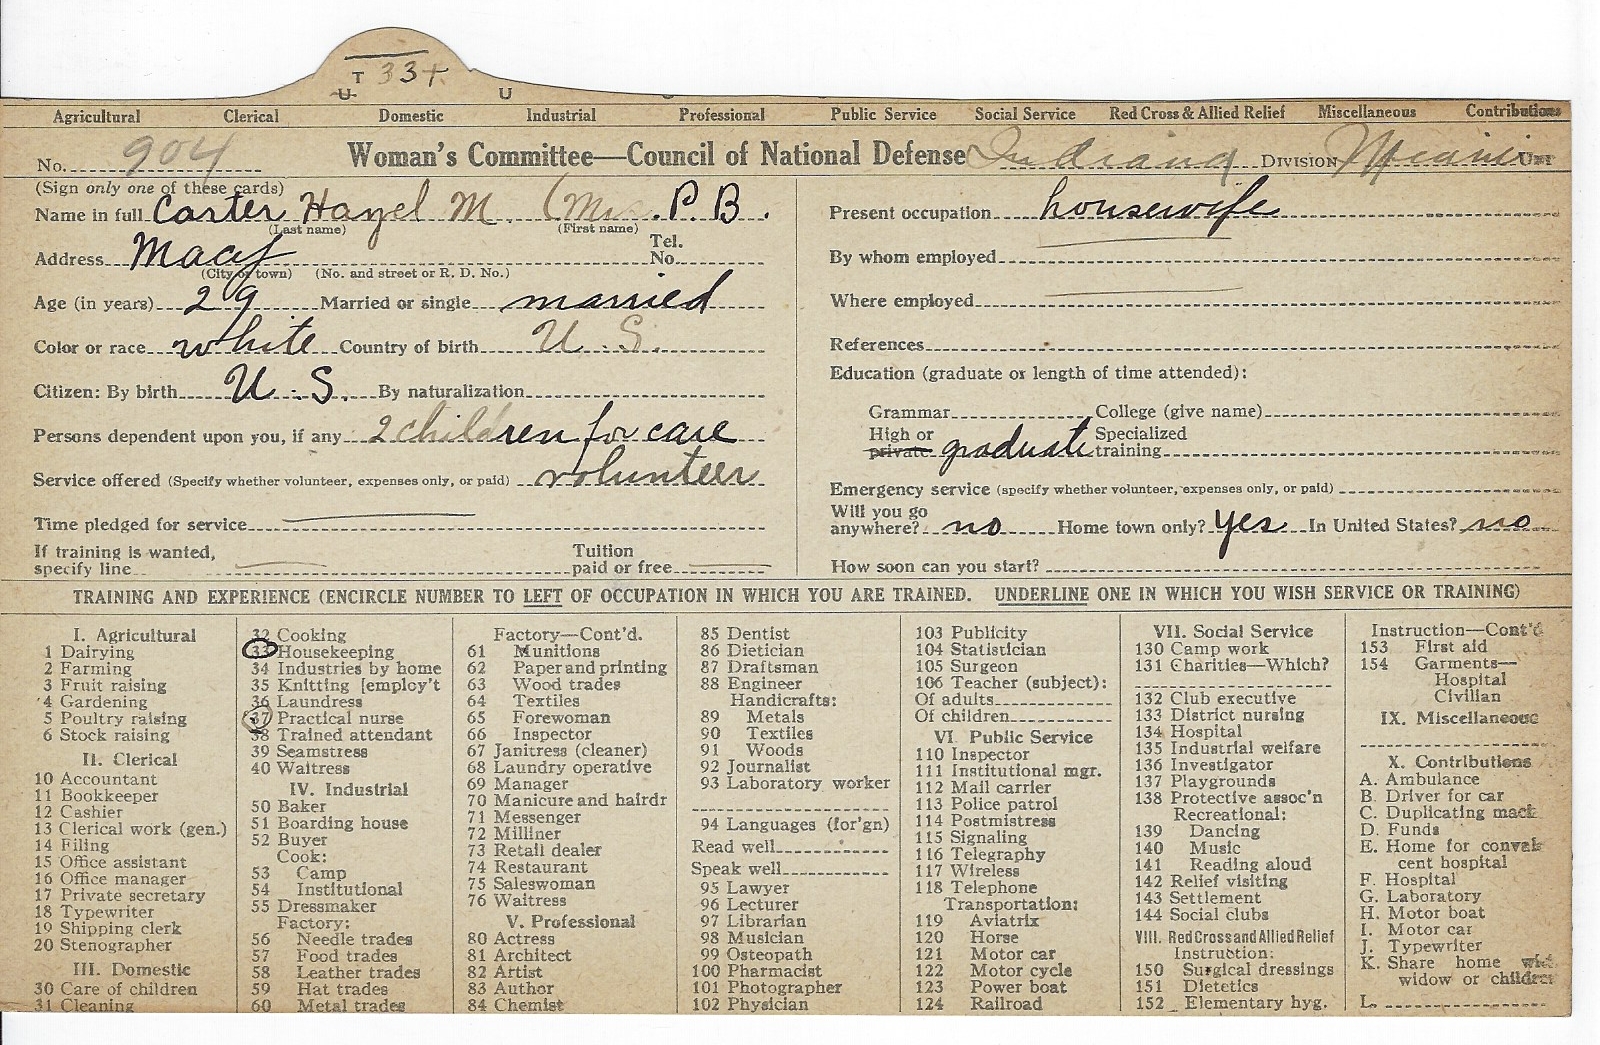 T 33+
U U
Agricultural Clerical Domestic Industrial Professional Public Service Social Service Red Cross & Allied Relief Miscellaneous Contributions
No. 904 Woman's Committee—Council of National Defense Indiana Division Unit
(Sign only one of these cards)
Name in full Carter Hazel M. (Mrs. P. B.
(Last name) (First name)
Address Macy Tel. No.
(City or town) (No. and street or R. D. No.)
Age (in years) 29 Married or single married
Color or race white Country of birth U. S.
Citizen: By birth U. S. By naturalization
Persons dependent upon you, if any 2 children for care
Service offered (Specify whether volunteer, expenses only, or paid) volunteer
Time pledged for service
If training is wanted, specify line Tuition paid or free
Present occupation housewife
By whom employed
Where employed
References
Education (graduate or length of time attended):
Grammar College (give name)
High or private graduate Specialized training
Emergency service (specify whether volunteer, expenses only, or paid)
Will you go anywhere? no Home town only? yes In United States? no
How soon can you start?
TRAINING AND EXPERIENCE (ENCIRCLE NUMBER TO LEFT OF OCCUPATION IN WHICH YOU ARE TRAINED. UNDERLINE ONE IN WHICH YOU WISH SERVICE OR TRAINING)
I. Agricultural
1 Dairying
2 Farming
3 Fruit raising
4 Gardening
5 Poultry raising
6 Stock raising
II. Clerical
10 Accountant
11 Bookkeeper
12 Cashier
13 Clerical work (gen.)
14 Filing
15 Office assistant
16 Office manager
17 Private secretary
18 Typewriter
19 Shipping clerk
20 Stenographer
III. Domestic
30 Care of children
31 Cleaning
32 Cooking
33 Housekeeping
34 Industries by home
35 Knitting [employ't
36 Laundress
37 Practical nurse
38 Trained attendant
39 Seamstress
40 Waitress
IV. Industrial
50 Baker
51 Boarding house
52 Buyer
Cook:
53 Camp
54 Institutional
55 Dressmaker
Factory:
56 Needle trades
57 Food trades
58 Leather trades
59 Hat trades
60 Metal trades
Factory—Cont'd.
61 Munitions
62 Paper and printing
63 Wood trades
64 Textiles
65 Forewoman
66 Inspector
67 Janitress (cleaner)
68 Laundry operative
69 Manager
70 Manicure and hairdr
71 Messenger
72 Milliner
73 Retail dealer
74 Restaurant
75 Saleswoman
76 Waitress
V. Professional
80 Actress
81 Architect
82 Artist
83 Author
84 Chemist
85 Dentist
86 Dietician
87 Draftsman
88 Engineer
Handicrafts:
89 Metals
90 Textiles
91 Woods
92 Journalist
93 Laboratory worker
94 Languages (for'gn)
Read well
Speak well
95 Lawyer
96 Lecturer
97 Librarian
98 Musician
99 Osteopath
100 Pharmacist
101 Photographer
102 Physician
103 Publicity
104 Statistician
105 Surgeon
106 Teacher (subject):
Of adults
Of children
VI Public Service
110 Inspector
111 Institutional mgr.
112 Mail carrier
113 Police patrol
114 Postmistress
115 Signaling
116 Telegraphy
117 Wireless
118 Telephone
Transportation:
119 Aviatrix
120 Horse
121 Motor car
122 Motor cycle
123 Power boat
124 Railroad
VII. Social Service
130 Camp work
131 Charities—Which?
132 Club executive
133 District nursing
134 Hospital
135 Industrial welfare
136 Investigator
137 Playgrounds
138 Protective assoc'n
Recreational:
139 Dancing
140 Music
141 Reading aloud
142 Relief visiting
143 Settlement
144 Social clubs
VIII. Red Cross and Allied Relief
Instruction:
150 Surgical dressings
151 Dietetics
152 Elementary hyg.
Instruction—Cont'd
153 First aid
154 Garments—
Hospital
Civilian
IX. Miscellaneous
X. Contributions
A. Ambulance
B. Driver for car
C. Duplicating mach
D. Funds
E. Home for conval-
cent hospital
F. Hospital
G. Laboratory
H. Motor boat
I. Motor car
J. Typewriter
K. Share home with
widow or children
L.